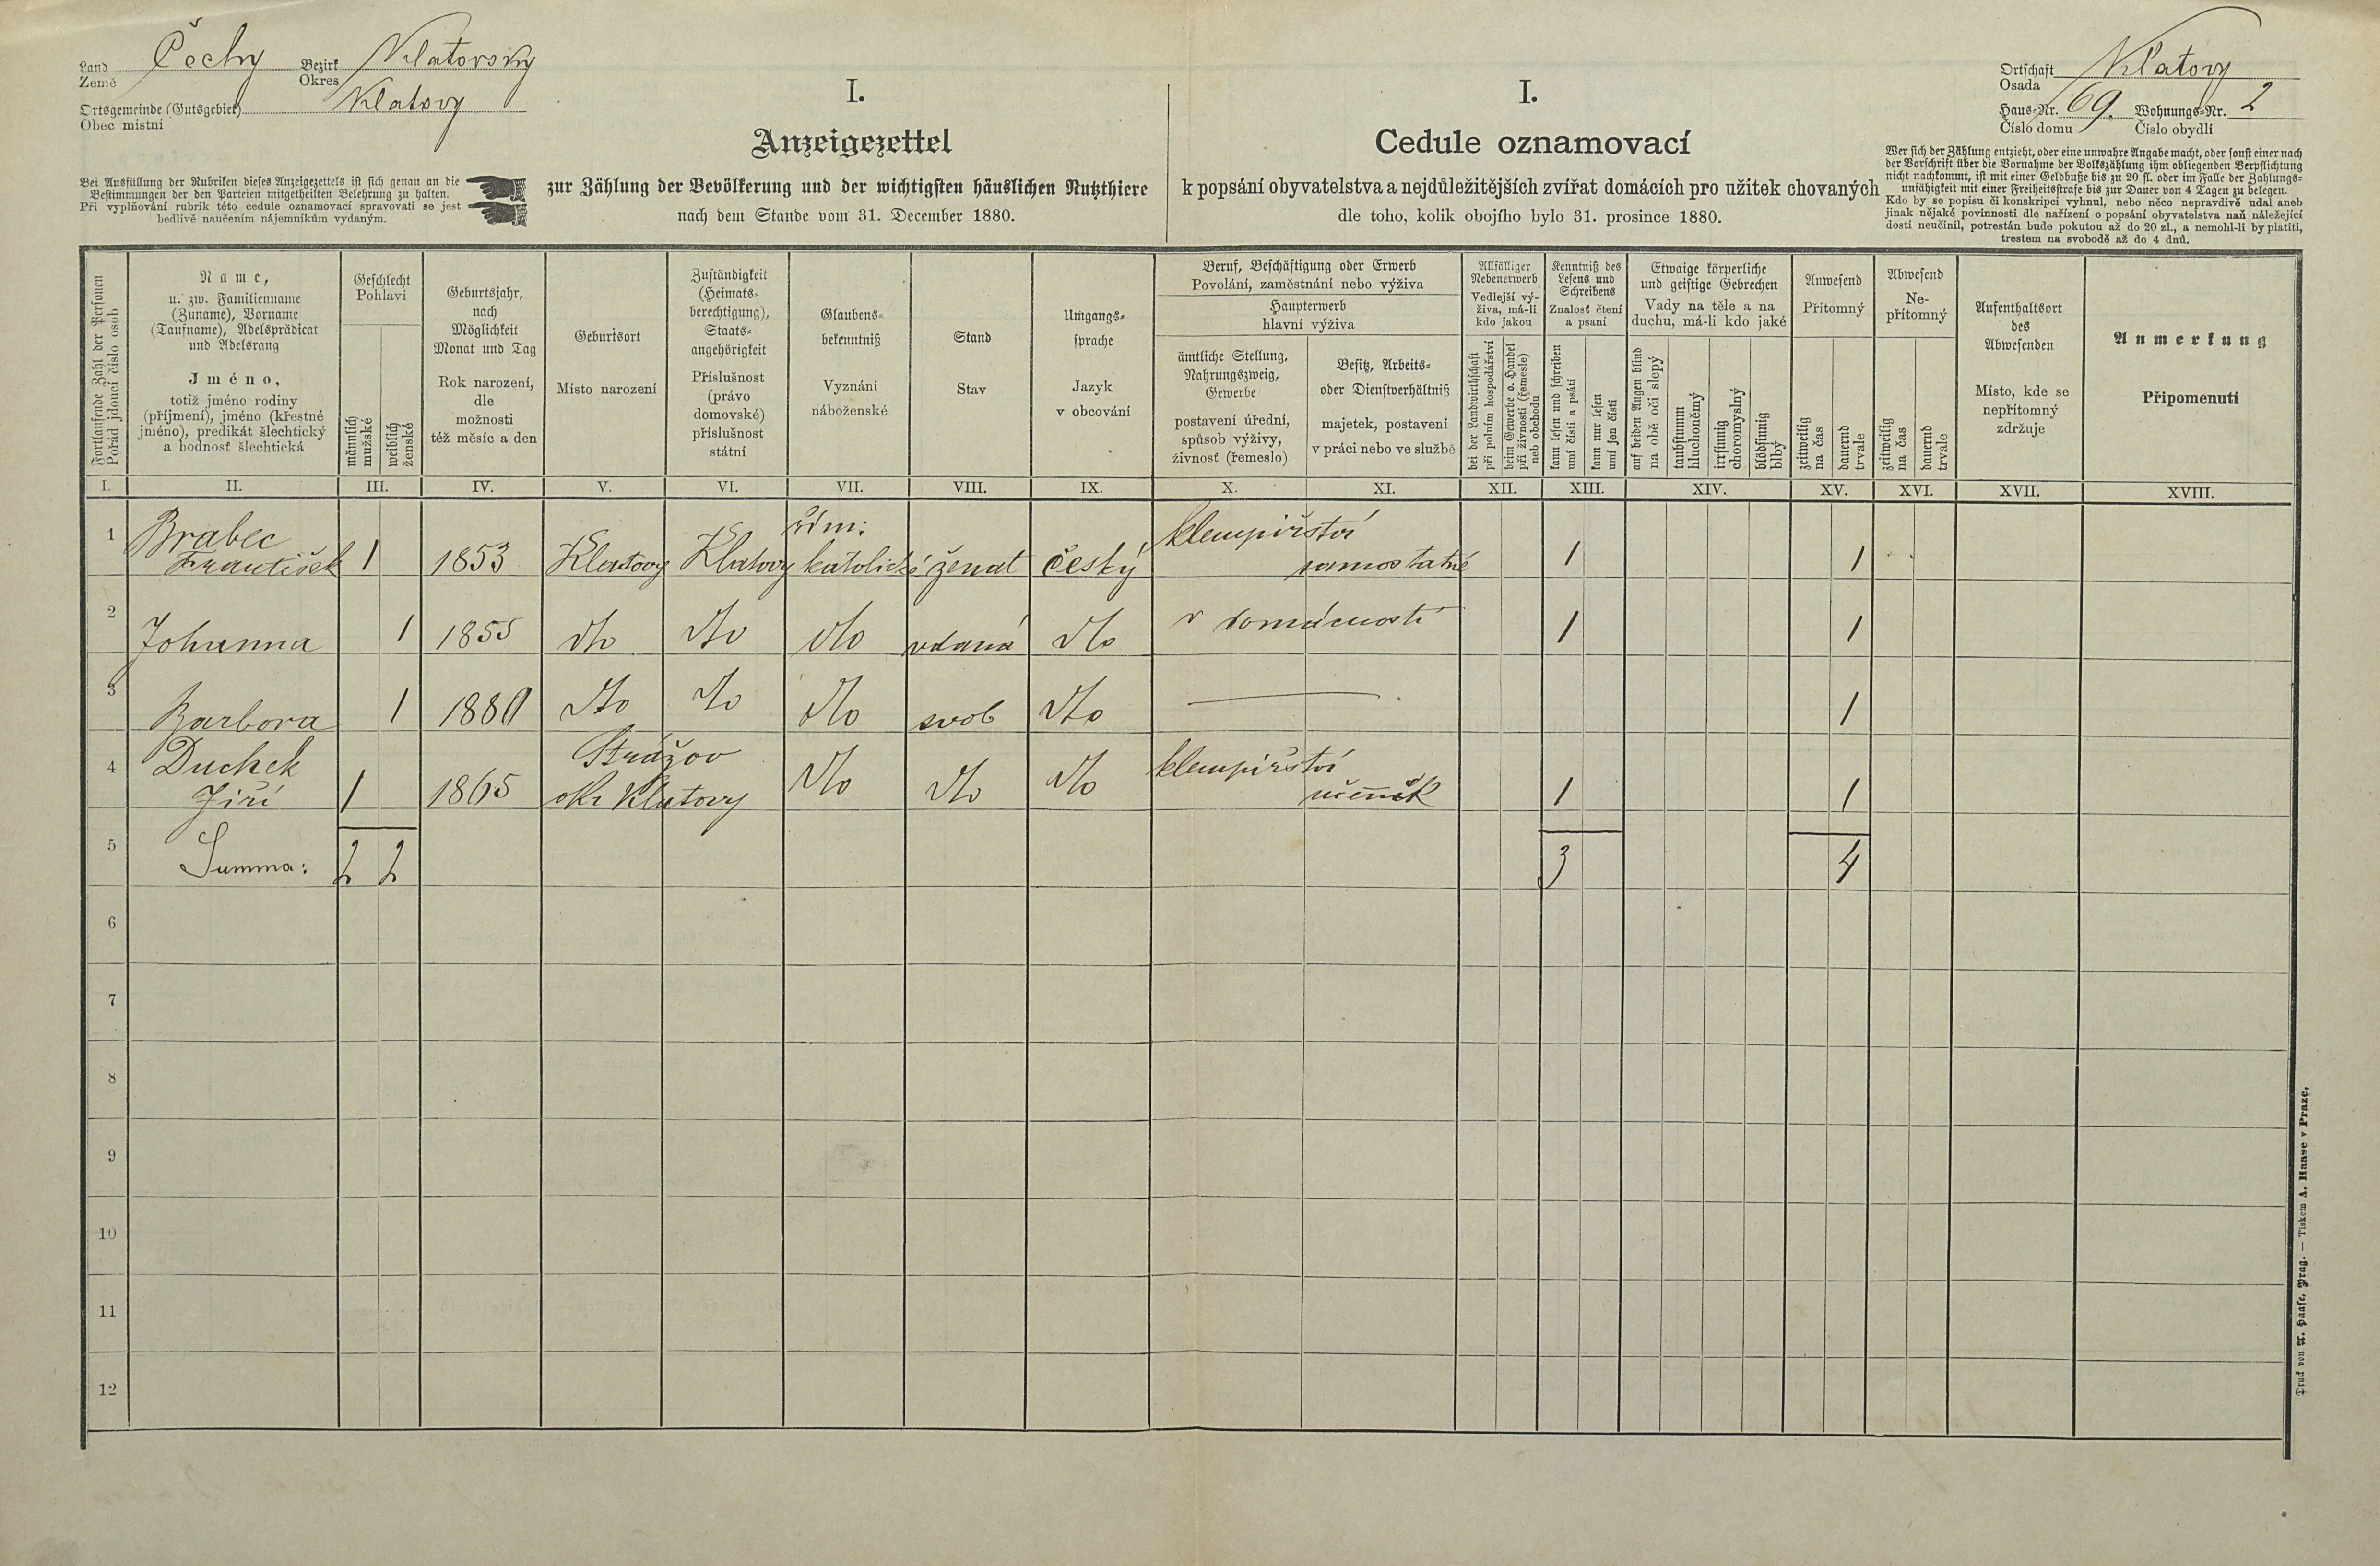 Land Čechy Bezirk Klatovský
Země Okres
Ortsgemeinde (Gutsgebiet) Klatovy
Obec místní
Bei Ausfüllung der Rubriken dieses Anzeigezettels ist sich genau an die
Bestimmungen der den Parteien mitgetheilten Belehrung zu halten.
Při vyplňování rubrik této cedule oznamovací spravovati se jest
bedlivě naučením nájemníkům vydaným.
I.
Anzeigezettel
zur Zählung der Bevölkerung und der wichtigsten häuslichen Nutzthiere
nach dem Stande vom 31. December 1880.
I.
Cedule oznamovací
k popsání obyvatelstva a nejdůležitějších zvířat domácích pro užitek chovaných
dle toho, kolik obojího bylo 31. prosince 1880.
Ortschaft Klatovy
Osada
Haus-Nr. 69. Wohnungs-Nr. 2
Číslo domu Číslo obydlí
Wer sich der Zählung entzieht, oder eine unwahre Angabe macht, oder sonst einer nach
der Vorschrift über die Vornahme der Volkszählung ihm obliegenden Verpflichtung
nicht nachkommt, ist mit einer Geldbuße bis zu 20 fl. oder im Falle der Zahlungs-
unfähigkeit mit einer Freiheitsstrafe bis zur Dauer von 4 Tagen zu belegen.
Kdo by se popisu či konskripci vyhnul, nebo něco nepravdivě udal aneb
jinak nějaké povinnosti dle nařízení o popsání obyvatelstva naň náležející
dosti neučinil, potrestán bude pokutou až do 20 zl., a nemohl-li by platiti,
trestem na svobodě až do 4 dnů.
Fortlaufende Zahl der Personen
Pořád jdoucí číslo osob
Name,
u. zw. Familienname
(Zuname), Vorname
(Taufname), Adelsprädicat
und Adelsrang
Jméno,
totiž jméno rodiny
(příjmení), jméno (křestné
jméno), predikát šlechtický
a hodnosť šlechtická
Geschlecht
Pohlaví
männlich
mužské
weiblich
ženské
Geburtsjahr,
nach
Möglichkeit
Monat und Tag
Rok narození,
dle
možnosti
též měsíc a den
Geburtsort
Místo narození
Zuständigkeit
(Heimats-
berechtigung),
Staats-
angehörigkeit
Příslušnost
(právo
domovské)
příslušnost
státní
Glaubens-
bekenntniß
Vyznání
náboženské
Stand
Stav
Umgangs-
sprache
Jazyk
v obcování
Beruf, Beschäftigung oder Erwerb
Povolání, zaměstnání nebo výživa
Haupterwerb
hlavní výživa
ämtliche Stellung,
Nahrungszweig,
Gewerbe
postavení úřední,
spůsob výživy,
živnosť (řemeslo)
Besitz, Arbeits-
oder Dienstverhältniß
majetek, postavení
v práci nebo ve službě
Allfälliger
Nebenerwerb
Vedlejší vý-
živa, má-li
kdo jakou
bei der Landwirthschaft
při polním hospodářství
beim Gewerbe o. Handel
při živnosti (řemesle)
neb obchodu
Kenntniß des
Lesens und
Schreibens
Znalosť čtení
a psaní
kann lesen und schreiben
umí čísti a psáti
kann nur lesen
umí jen čísti
Etwaige körperliche
und geistige Gebrechen
Vady na těle a na
duchu, má-li kdo jaké
auf beiden Augen blind
na obě oči slepý
taubstumm
hluchoněmý
irrsinnig
choromyslný
blödsinnig
blbý
Anwesend
Přítomný
zeitweilig
na čas
dauernd
trvale
Abwesend
Ne-
přítomný
zeitweilig
na čas
dauernd
trvale
Aufenthaltsort
des
Abwesenden
Místo, kde se
nepřítomný
zdržuje
Anmerkung
Připomenutí
I. II. III. IV. V. VI. VII. VIII. IX. X. XI. XII. XIII. XIV. XV. XVI. XVII. XVIII.
1 Brabec řím: klempířství
František 1 1853 Klatovy Klatovy katolické ženat český samostatné 1 1
2 Johanna 1 1855 dto dto dto vdaná dto v domácnosti 1 1
3 Barbora 1 1880 dto dto dto svob dto — 1
4 Duchek Strážov klempířství
Jiří 1 1865 okr Klatovy dto dto dto učenník 1 1
5 Summa: 2 2 3 4
6
7
8
9
10
11
12
Druck von A. Haase, Prag. — Tiskem A. Haase v Praze.